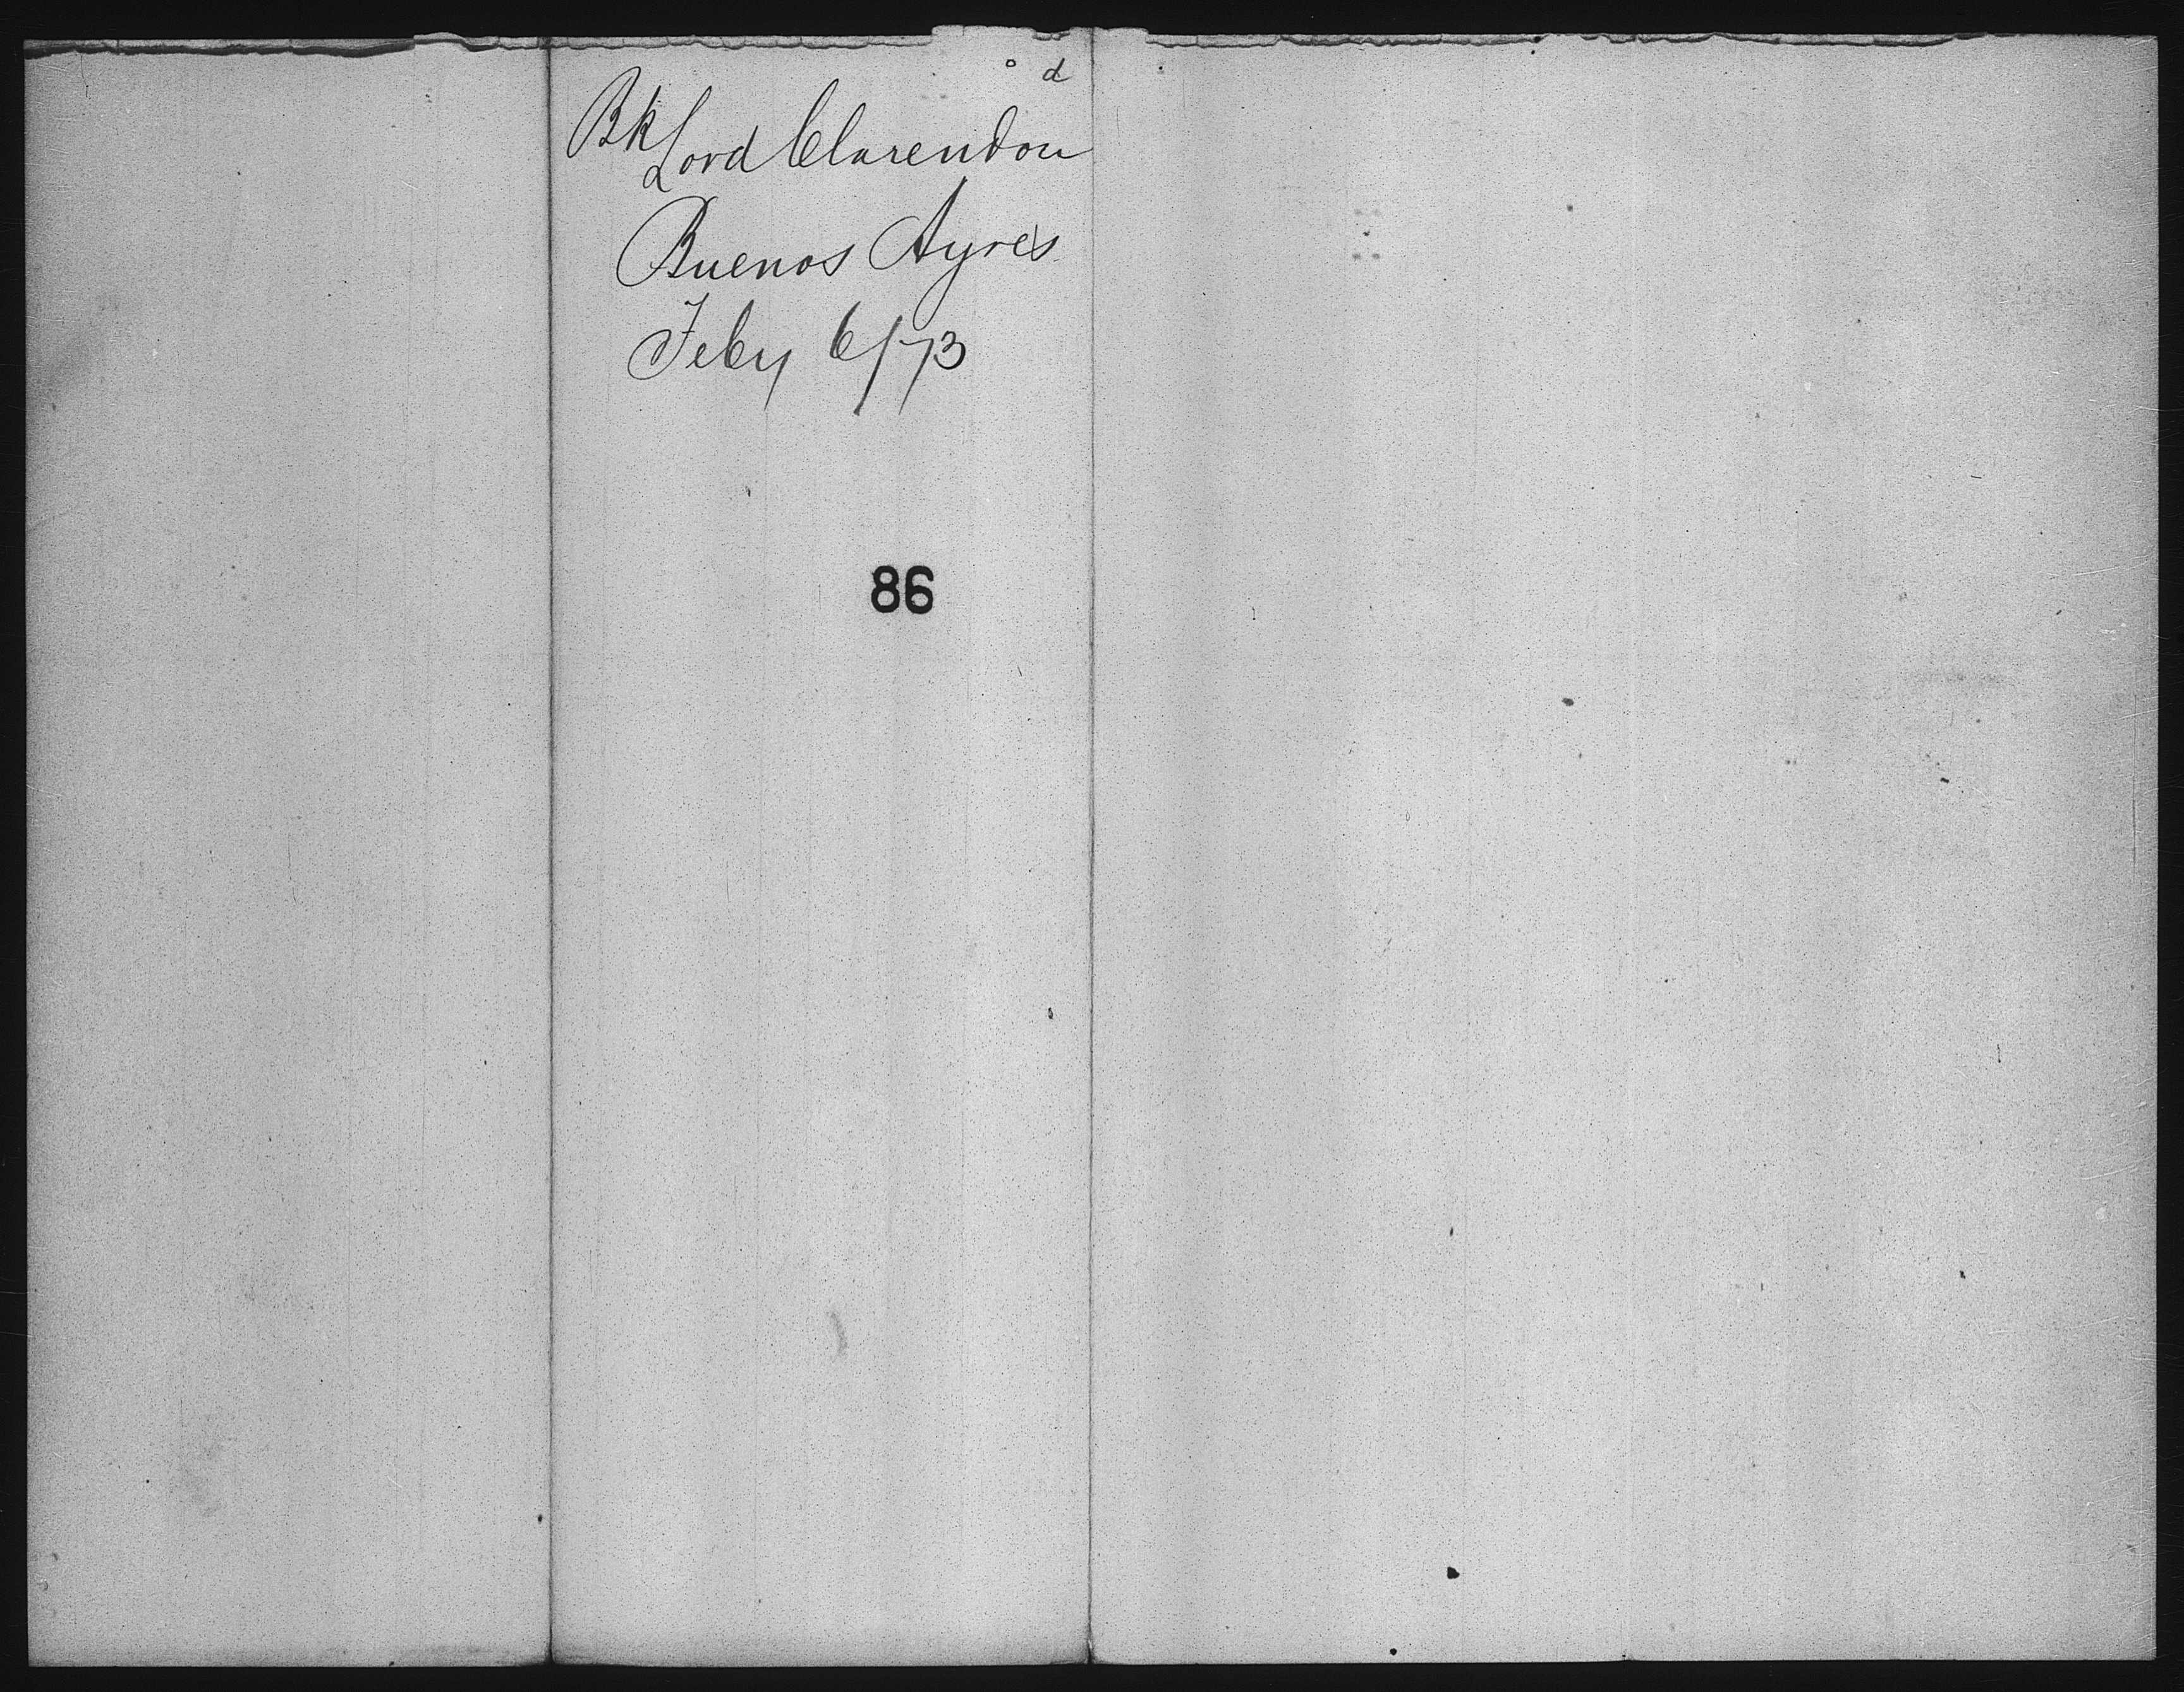 d
Bk Lord Clarendon
Buenos Ayres
Feby 6/73
86